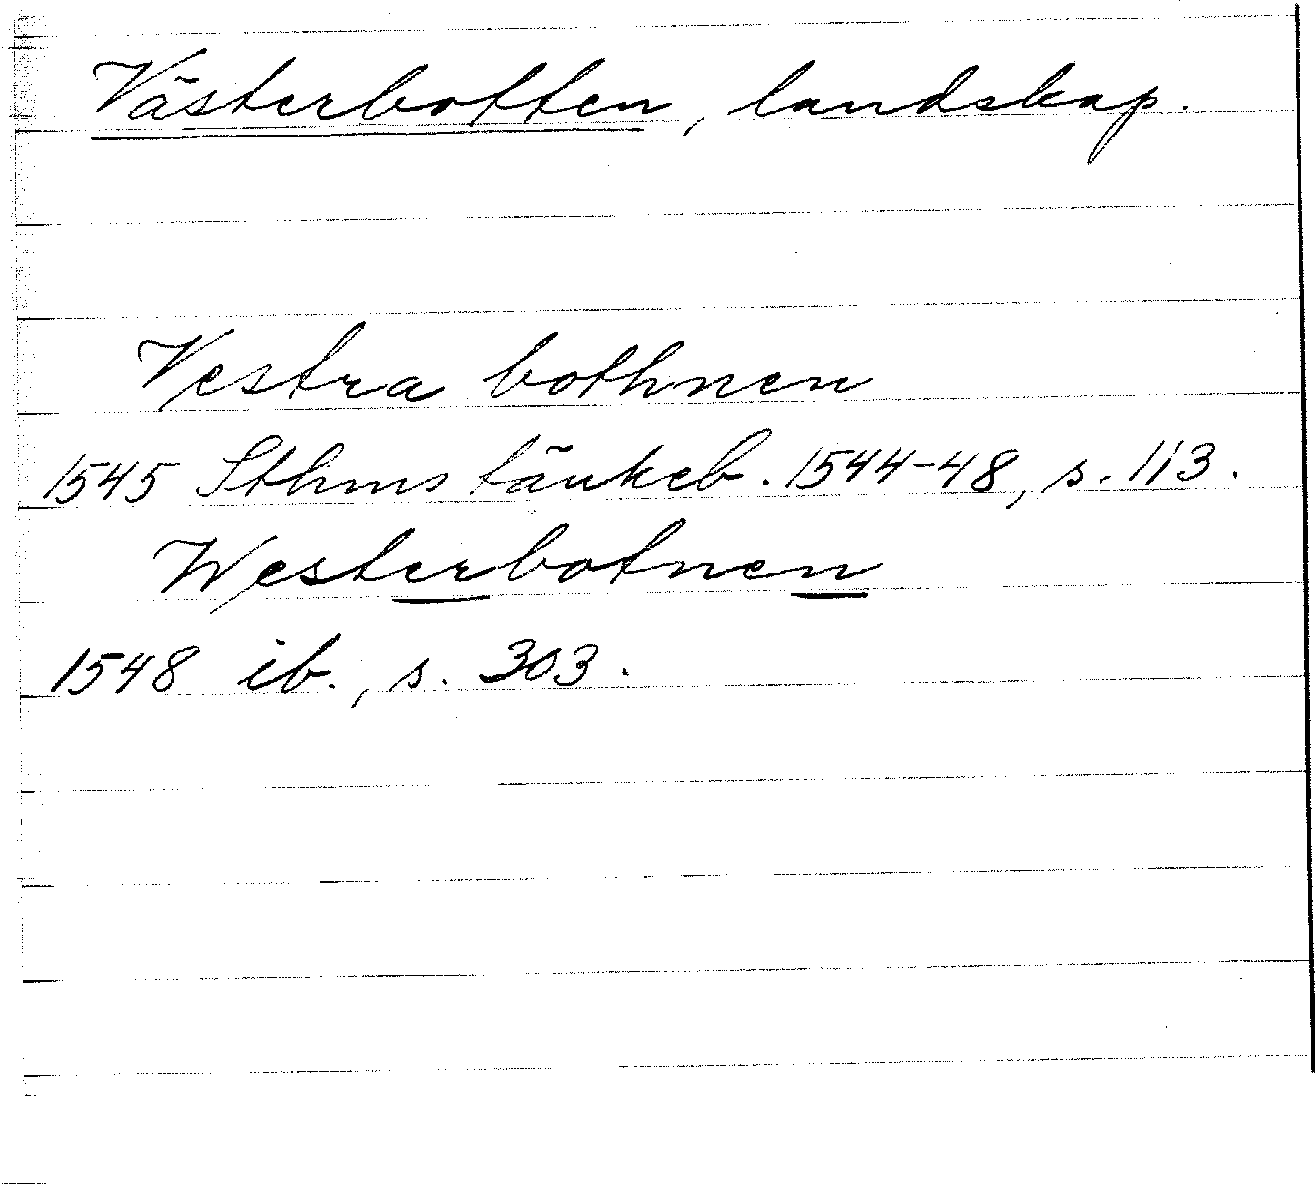 Västerbotten, landskap.
Vestra bothnen
1545 Sthms tänkeb. 1544-48, s. 113.
Westerbotnen
1548 ib., s. 303.